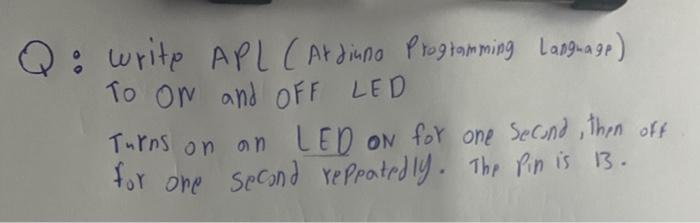 Q: Write APL (Arduino Programming Language)
To ON and OFF LED
Turns on an LED ON for one second, then off
for one second reppatedly. The Pin is 13.